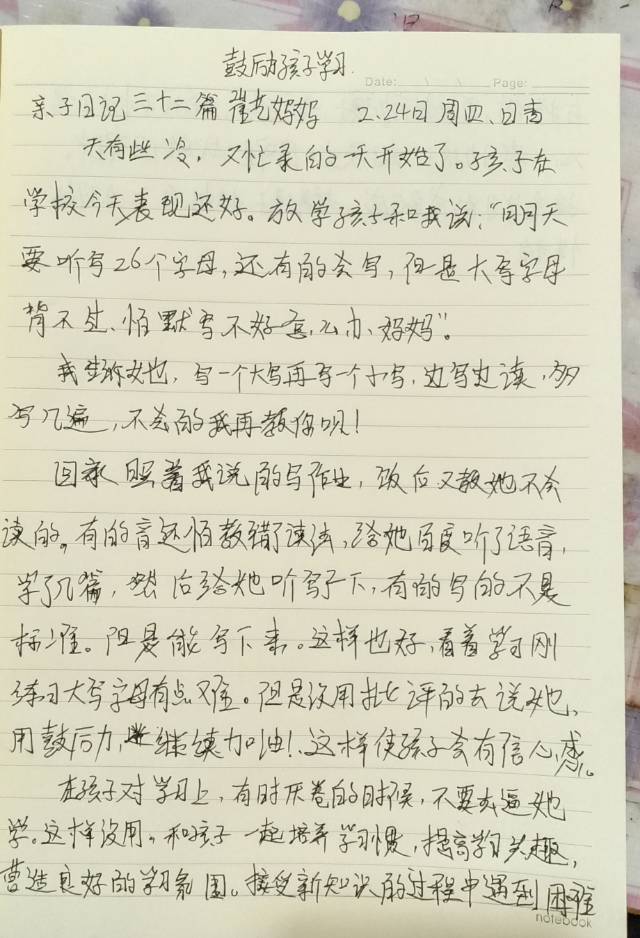 鼓励孩子学习
Date: \ \ Page:
亲子日记 三十二篇 妈妈 2.24日 周四、日青
天有些冷，又忙录的一天开始了。孩子在
学校今天表现还好。放学孩子和我说：“明天
要听写26个字母，还有的会写，但是大写字母
背不过、怕默写不好怎么办、妈妈”。
我告诉她，写一个大写再写一个小写，边写边读，多
写几遍，不会的我再教你呗！
回家照着我说的写作业，饭后又教她不会
读的。有的音还怕教错读法，给她百度听了语音，
学了几篇，然后给她听写了下，有的写的不是
标准。但是能写下来。这样也好，看着学习刚
练习大写字母有点难。但是没用批评的去说她，
用鼓励，继续加油！这样使孩子会有信心感。
在孩子对学习上，有时厌卷的时候，不要去逼她
学。这样没用。和孩子一起培养学习惯，提高学习兴趣，
营造良好的学习氛围。接受新知识的过程中遇到困难
notebook